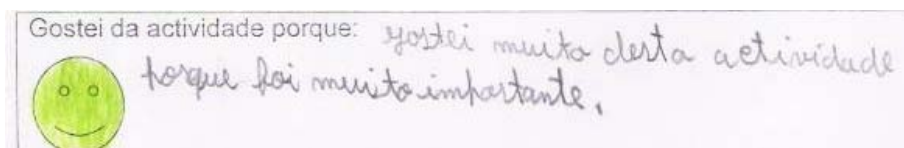 Gostei da actividade porque: gostei muito desta actividade
porque foi muito importante.